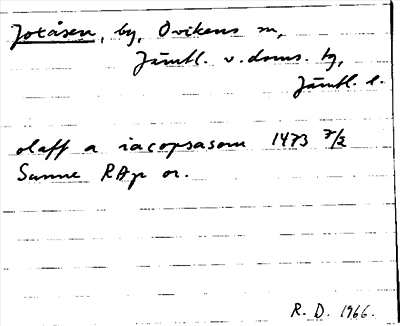 Jotåsen, by, Ovikens sn,
Jämtl. v. doms. tg,
Jämtl. l.
olaff a iacopsasom 1473 7/2
Sunne RAp or.
R. D. 1966.